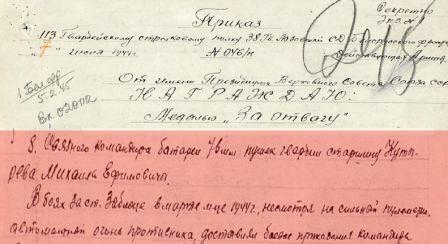 Секретно
Экз. №
Приказ
113 Гвардейскому стрелковому полку 38 Гв. Лозовской СД Белорусского фронта
7 июня 1944г. № 046/н Действующая Армия.
1 Бел фр
5.2.45
Вх 02002
От имени Президиума Верховного Совета Союза ССР
НАГРАЖДАЮ:
Медалью „За отвагу"
8. Связного командира батареи 76 мм пушек гвардии старшину
рева Михаила Ефимовича.
В боях за ст. Заблоце в марте м-це 1944г., несмотря на сильный пулемёт.
автоматный огонь противника, доставлял боевые приказания командира